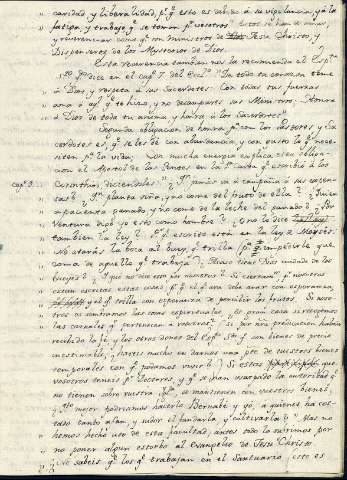 caridad, y liberalidad, pr. q.e esto es debido á su vigilancia, y á la
fatiga, y trabajo, q.e se toman pr. vosotros. Estos se han de amar,
y reverenciar como q.e son ministros de Jesu-Christo, y
Dispensores de los Mysterios de Dios.
Esta reverencia tambien nos la recomienda el Esp.tu
S.to q.e dice en el cap.o 7. del Eccl.co "En toda tu teme
á Dios, y respeta á sus Sacerdotes. Con todas tus fuerzas
ama á aql. q.e te hizo, y no desampares sus Ministros: Honra
á Dios de toda tu anima, y honra á los Sacerdotes"
Segunda obligacion de honra pr. con los Pastores y Sa-
cerdotes es, q.e se les dé con abundancia, y con gusto lo q.e nece-
siten pa. la vida; con mucha energia explica esta obliga-
cion el Apostol de las Gentes en la Carta q.e escribió á los
Cap. 9. Corinthios, diciendoles: "¿Qn. jamás va á campaña á sus expen-
sas? ¿Qn. planta viña, y no come del fruto de ella? ¿Quien
apacienta ganado, y no come de la leche del ganado? ¿Por
Ventura digo yo esto como hombre? ¿O no lo dice
tambien la ley? Pr. q.e escrito está en la ley de Moysés:
No atarás la boca al buey, q.e trilla, pa. impedirle que
coma de aquello q.e trabaja: ¿Acaso tiene Dios cuidado de los
bueyes? ¿Y que no dice esto pr. nosotros? Si ciertamte. pr. nosotros
estan escritas estas cosas: pr. q.e el q.e ara debe arar con esperanza,
y el q.e trilla con esperanza de percibir los frutos. Si noso-
tros os sembramos las cosas espirituales, es gran cosa si recogemos
las carnales q.e pertenecen á vosotros? Si por nra. predicacion habeis
recibido la fé, y los otros dones del Esp.tu S.to q.e son bienes de precio
inestimable, ¿hareis mucho en darnos una pte. de vuestros bienes
temporales con q.e podamos vivir?) Si estos que
vosotros teneis pr. Doctores, y q.e se han usurpado la autoridad q.e
no tienen sobre vuestra, se mantienen con vuestros bienes,
¿Qto. mejor podriamos hacerlo Bernabé y yo, á quienes ha cos-
tado tanto afan, y sudor el fundarla, y cultivarla? "Mas no
hemos hecho uso de esta facultad, antes todo lo sufrimos por
no poner algun estorbo al Evangelio de Jesu Christo
¿No sabeis q.e los q.e trabajan en el Santuario, este es